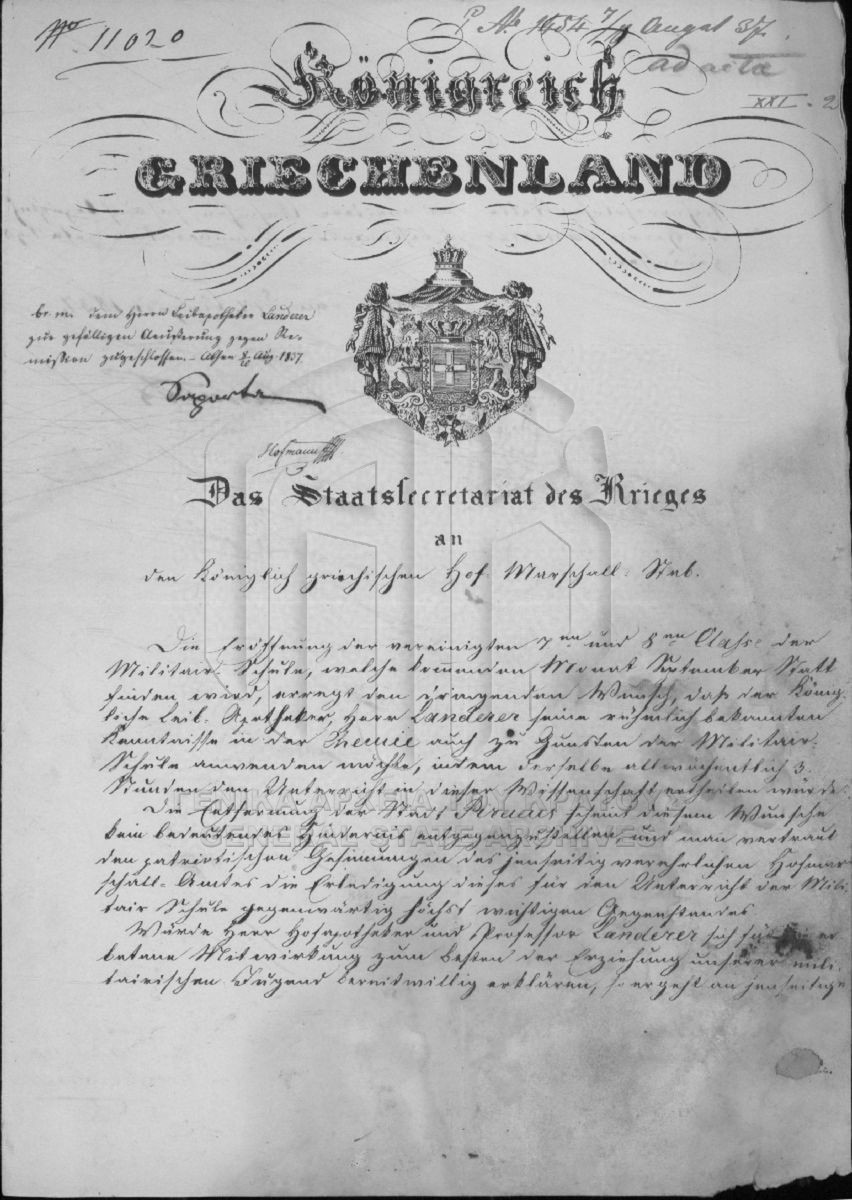 No 11020
P. No 1654 7/9 August 37.
ad acta
XXI. 2
Königreich
GRIECHENLAND
br. m. dem Herrn Leibapotheker Landerer
zur gefälligen Aeußerung gegen Re-
mission zugeschlossen. – Athen Aug. 1837.
Saporta
Hofmann
Das Staatssecretariat des Krieges
an
den Königlich griechischen Hof-Marschall-Stab.
Die Eröffnung der vereinigten 7ten und 8ten Classe der
Militair-Schule, welche kommenden Monat September Statt
finden wird, erregt den dringenden Wunsch, daß der König-
liche Leib-Apotheker, Herr Landerer seine rühmlich bekannten
Kenntnisse in der Chemie auch zu Gunsten der Militair-
Schule anwenden möchte, indem derselbe allwöchentlich 3
Stunden den Unterricht in dieser Wissenschaft ertheilen würde.
Die Entfernung der Stadt Piraeus scheint diesem Wunsche
kein bedeutendes Hinderniß entgegenzustellen und man vertraut
den patriotischen Gesinnungen des jenseitig verehrlichen Hofmar-
schall-Amtes die Erledigung dieses für den Unterricht der Mili-
tair Schule gegenwärtig höchst wichtigen Gegenstandes
Würde Herr Hofapotheker und Professor Landerer sich für er
betene Mitwirkung zum besten der Erziehung unserer mili-
tairischen Jugend bereitwillig erklären, so ergeht an jenseitige
ΓΕΝΙΚΑ ΑΡΧΕΙΑ ΤΟΥ ΚΡΑΤΟΥΣ
GENERAL STATE ARCHIVES